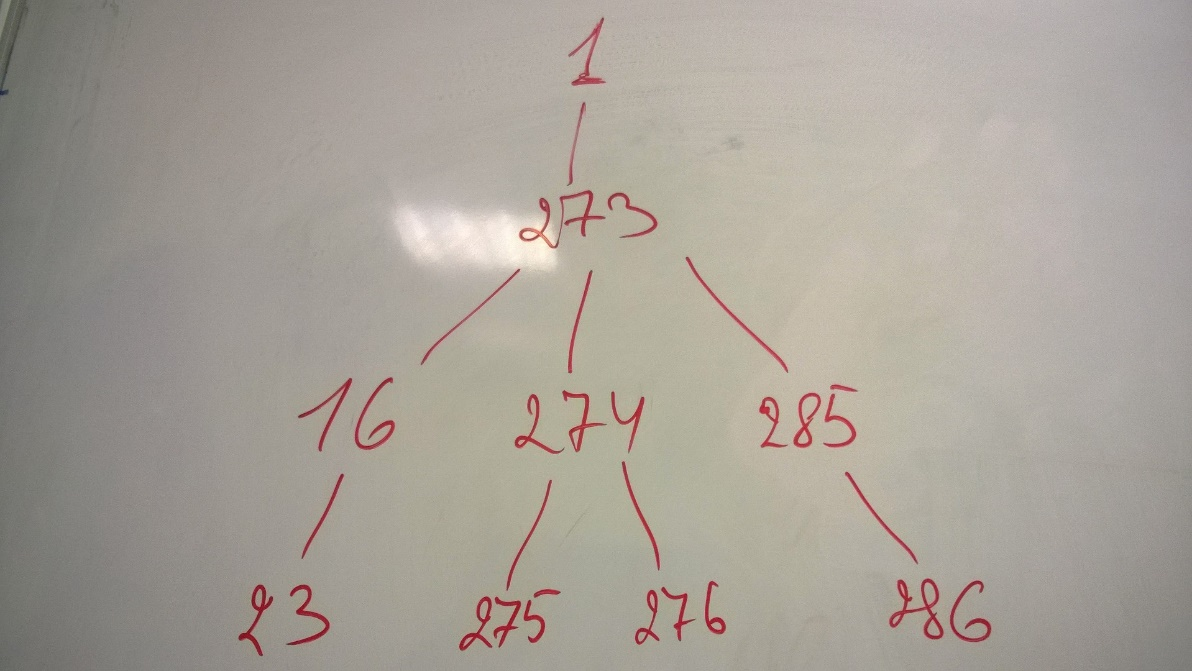 1
273
16 274 285
23 275 276 286